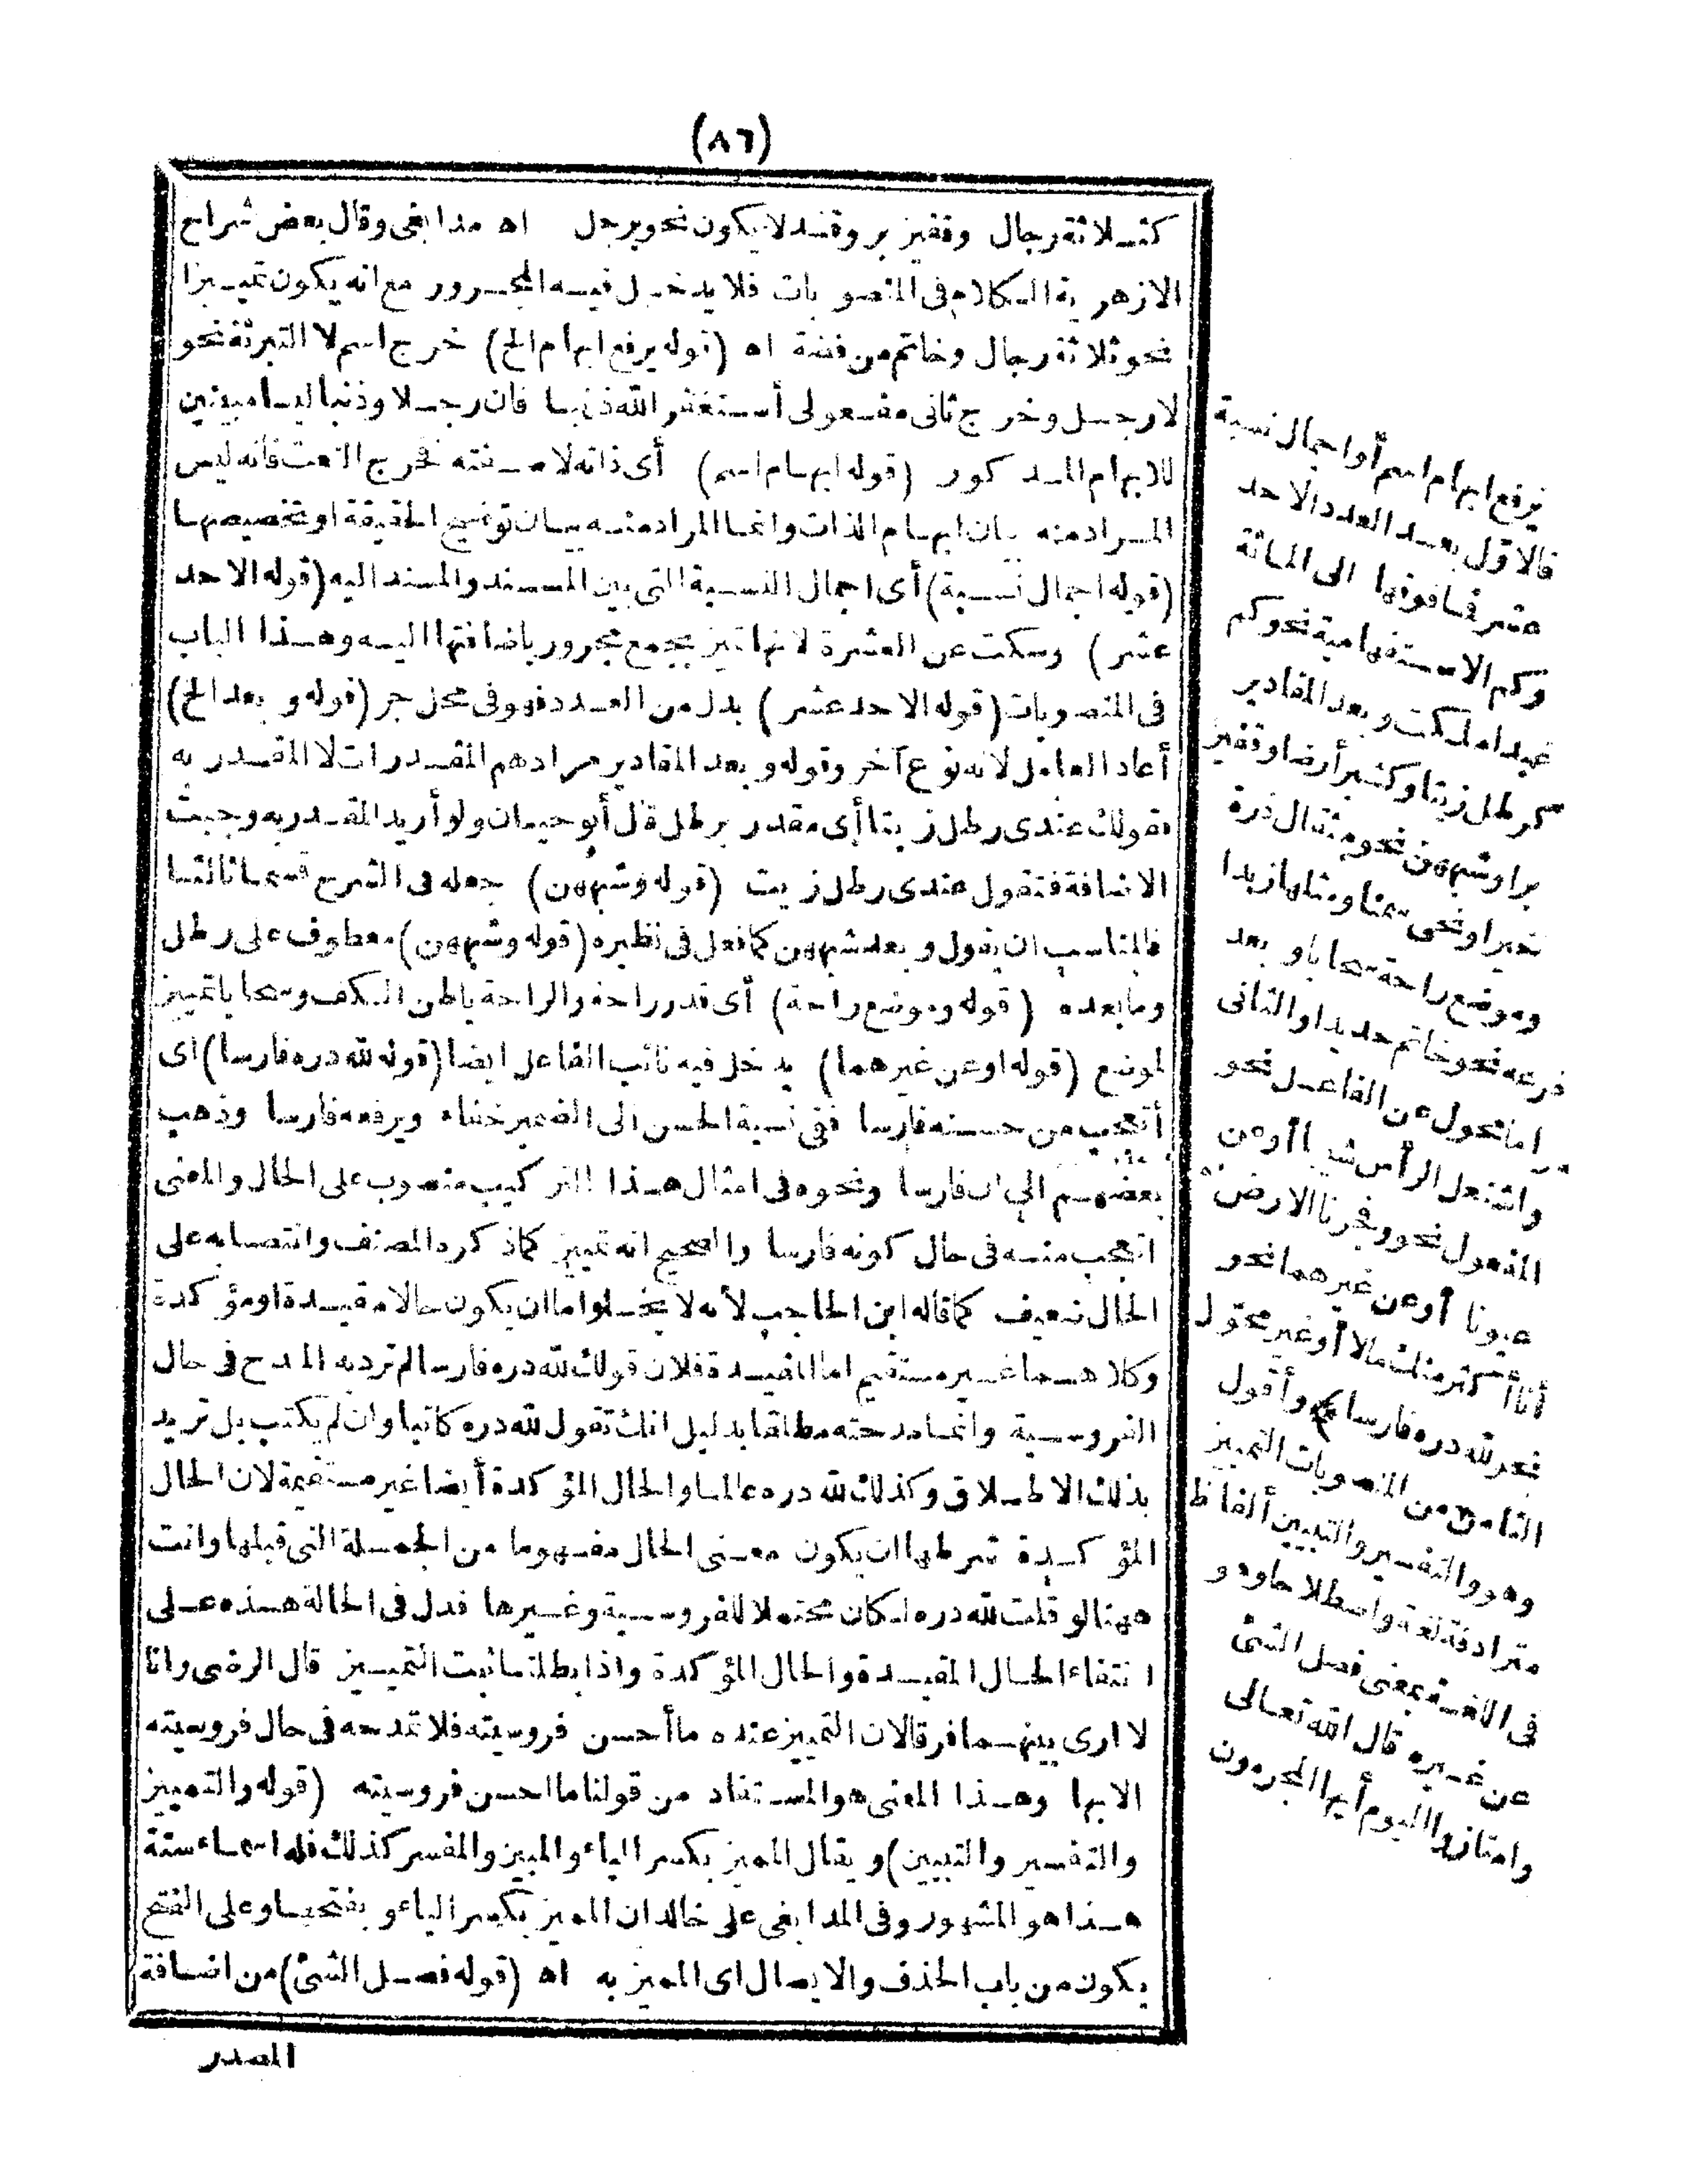 (٨٦)
كثـلاثة رجال وقفيز بر وقند لا يكون نحو برجل اه مدابغى وقال بعض شراح
الازهرية الكلام فى المنصوبات فلا يدخل فيه المجرور مع انه يكون تمييزا
نحو ثلاثة رجال وخاتم من فضة اه (قوله يرفع ابهام الخ) خرج اسم لا التبرئة نحو
لا رجل وخرج ثانى مفعولى أستغفر الله ذنبا فان رجلا وذنبا ليسا مبينين
للابهام المذكور (قوله ابهام اسم) أى ذاته لا صفته فخرج النعت فانه ليس
المراد منه بيان ابهام الذات وانما المراد منه بيان توضيح الحقيقة او تخصيصها
(قوله اجمال نسبة) أى اجمال النسبة التى بين المسند والمسند اليه (قوله الاحد
عشر) وسكت عن العشرة لانها تميز بجمع مجرور باضافتها اليه وهذا الباب
فى المنصوبات (قوله الاحد عشر) بدل من العدد فهو فى محل جر (قوله وبعد الخ)
أعاد العامل لانه نوع آخر وقوله وبعد المقادير مرادهم المقدرات لا المقدر به
تقولك عندى رطل زيتا أى مقدر برطل قال أبو حيان ولو أريد المقدر به وجبت
الاضافة فتقول عندى رطل زيت (قوله وشبههن) جعله فى الشرح قسما ثالثا
فالمناسب ان يقول وبعد شبههن كما فعل فى نظيره (قوله وشبههن) معطوف على رطل
وما بعده (قوله وموضع راحة) أى قدر راحة والراحة باطن الكف وسحابا تمييز
لموضع (قوله او عن غيرهما) يدخل فيه نائب الفاعل ايضا (قوله لله دره فارسا) اى
أتعجب من حسنه فارسا ففى نسبة الحسن الى الضمير خفاء ويرفعه فارسا وذهب
بعضهم الى ان فارسا ونحوه فى امثال هذا التركيب منصوب على الحال والمعنى
اتعجب منه فى حال كونه فارسا والصحيح انه تمييز كما ذكره المصنف وانتصابه على
الحال ضعيف كما قاله ابن الحاجب لأنه لا يخلو اما ان يكون حالا مقيدة او مؤكدة
وكلاهما غير مستقيم اما المقيدة فلان قولك لله دره فارسا لم ترد به المدح فى حال
الفروسية وانما مدحته مطلقا بدليل انك تقول لله دره كاتبا وان لم يكتب بل تريد
بذلك الاطلاق وكذلك لله دره عالما والحال المؤكدة أيضا غير مستقيمة لان الحال
المؤكدة شرطها ان يكون معنى الحال مفهوما من الجملة التى قبلها وانت
ههنا لو قلت لله دره لكان محتملا للفروسية وغيرها فدل فى الحالة هذه على
انتفاء الحال المقيدة والحال المؤكدة واذا بطلتا ثبت التمييز قال الرضى وانا
لا ارى بينهما فرقا لان التمييز عنده ما أحسن فروسيته فلا تمدحه فى حال فروسيته
الا بها وهذا المعنى هو المستفاد من قولنا ما احسن فروسيته (قوله والتمييز
والتفسير والتبيين) ويقال المميز بكسر الياء والمبين والمفسر كذلك فله اسماء ستة
هذا هو المشهور وفى المدابغى على خالد ان المميز بكسر الياء وبفتحها وعلى الفتح
يكون من باب الحذف والايصال اى المميز به اه (قوله فصل الشئ) من اضافة
المصدر
يرفع ابهام اسم أو اجمال نسبة
فالاول بعد العدد الاحد
عشر فما فوقها الى المائة
وكم الاستفهامية نحو كم
عبدا ملكت وبعد المقادير
كرطل زيتا وكشبر أرضا وقفيز
برا وشبههن نحو مثقال ذرة
خيرا ونحى سمنا ومثلها زبدا
وموضع راحة سحابا وبعد
فرعه نحو خاتم حديدا والثانى
اما محول عن الفاعل نحو
واشتعل الرأس شيبا أو عن
المفعول نحو وفجرنا الارض
عيونا أو عن غيرهما نحو
أنا أكثر منك مالا أو غير محول
نحو لله دره فارسا ﴾ وأقول
الثامن من المنصوبات التمييز
وهو والتفسير والتبيين ألفاظ
مترادفة لغة واصطلاحا وهو
فى اللغة بمعنى فصل الشئ
عن غيره قال الله تعالى
وامتازوا اليوم أيها المجرمون